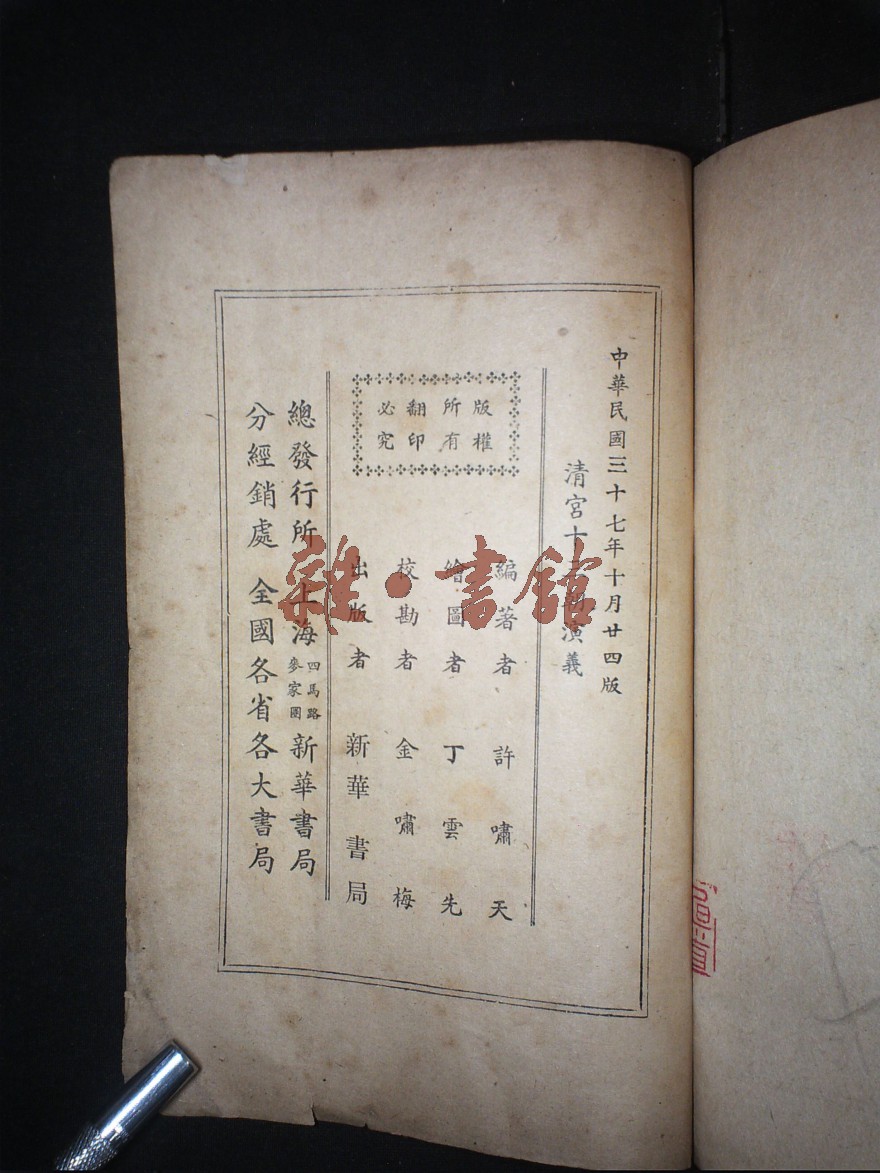 中華民國三十七年十月廿四版
清宮十三朝演義
版權
所有
翻印
必究
編著者 許嘯天
繪圖者 丁雲先
校勘者 金嘯梅
出版者 新華書局
總發行所 上海 四馬路 麥家圈 新華書局
分經銷處 全國各省各大書局
雜·書館